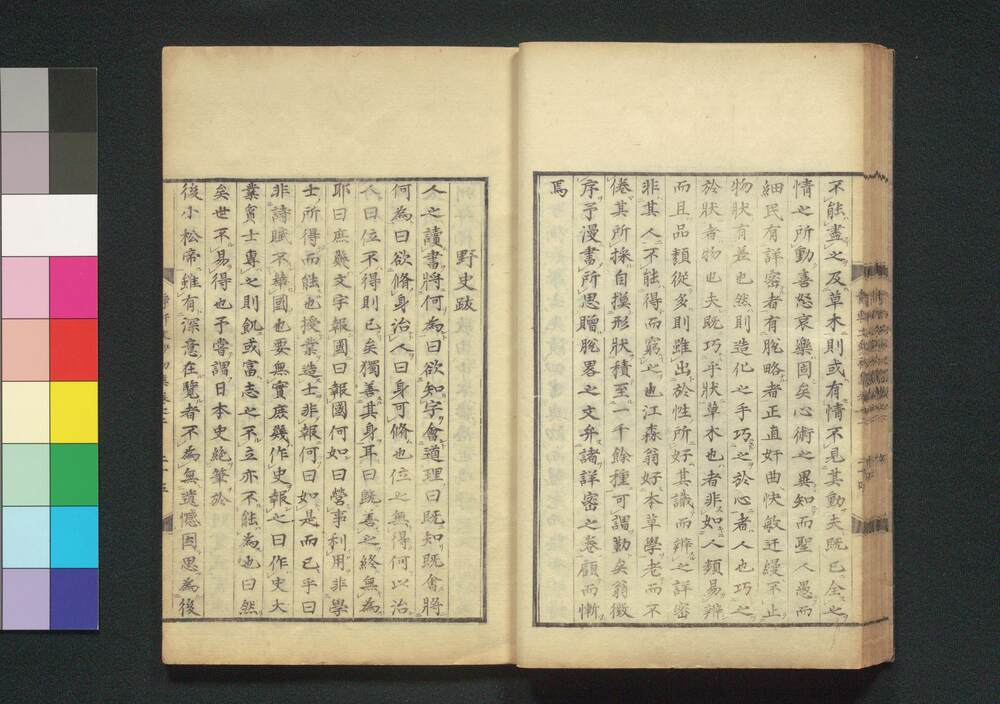 不能盡之及草木則或有情不見其動夫既已全之
情之所動喜怒哀樂固矣心術之異知而聖人愚而
細民有詳密者有脫略者正直奸曲快敏迂緩不止
物狀有盖也然則造化之手巧之於心者人也巧之
於狀者物也夫既巧乎狀草木也者非如人類易辨
而且品類從多則雖出於性所好其識而辨之詳密
非其人不能得而窮之也江森翁好本草學老而不
倦其所採自摸形狀積至一千餘種可謂勤矣翁徵
序予漫書所思贈脫畧之文弁諸詳密之卷顧而慚
焉
野史跋
人之讀書將何為曰欲知字會道理曰既知既會將
何為曰欲脩身治人曰身可脩也位之無得何以治
人曰位不得則已矣獨善其身耳曰既善之終無為
耶曰庶幾文字報國曰報國何如曰營事利用非學
士所得而能也授業造士非報何曰如是而已乎曰
非詩賦不華國也要無實庶幾作史報之曰作史大
業貧士專之則飢或富志之不立亦不能為也曰然
矣世不易得也予嘗謂日本史絶筆於
後小松帝雖有深意在覽者不為無遺憾因思為後